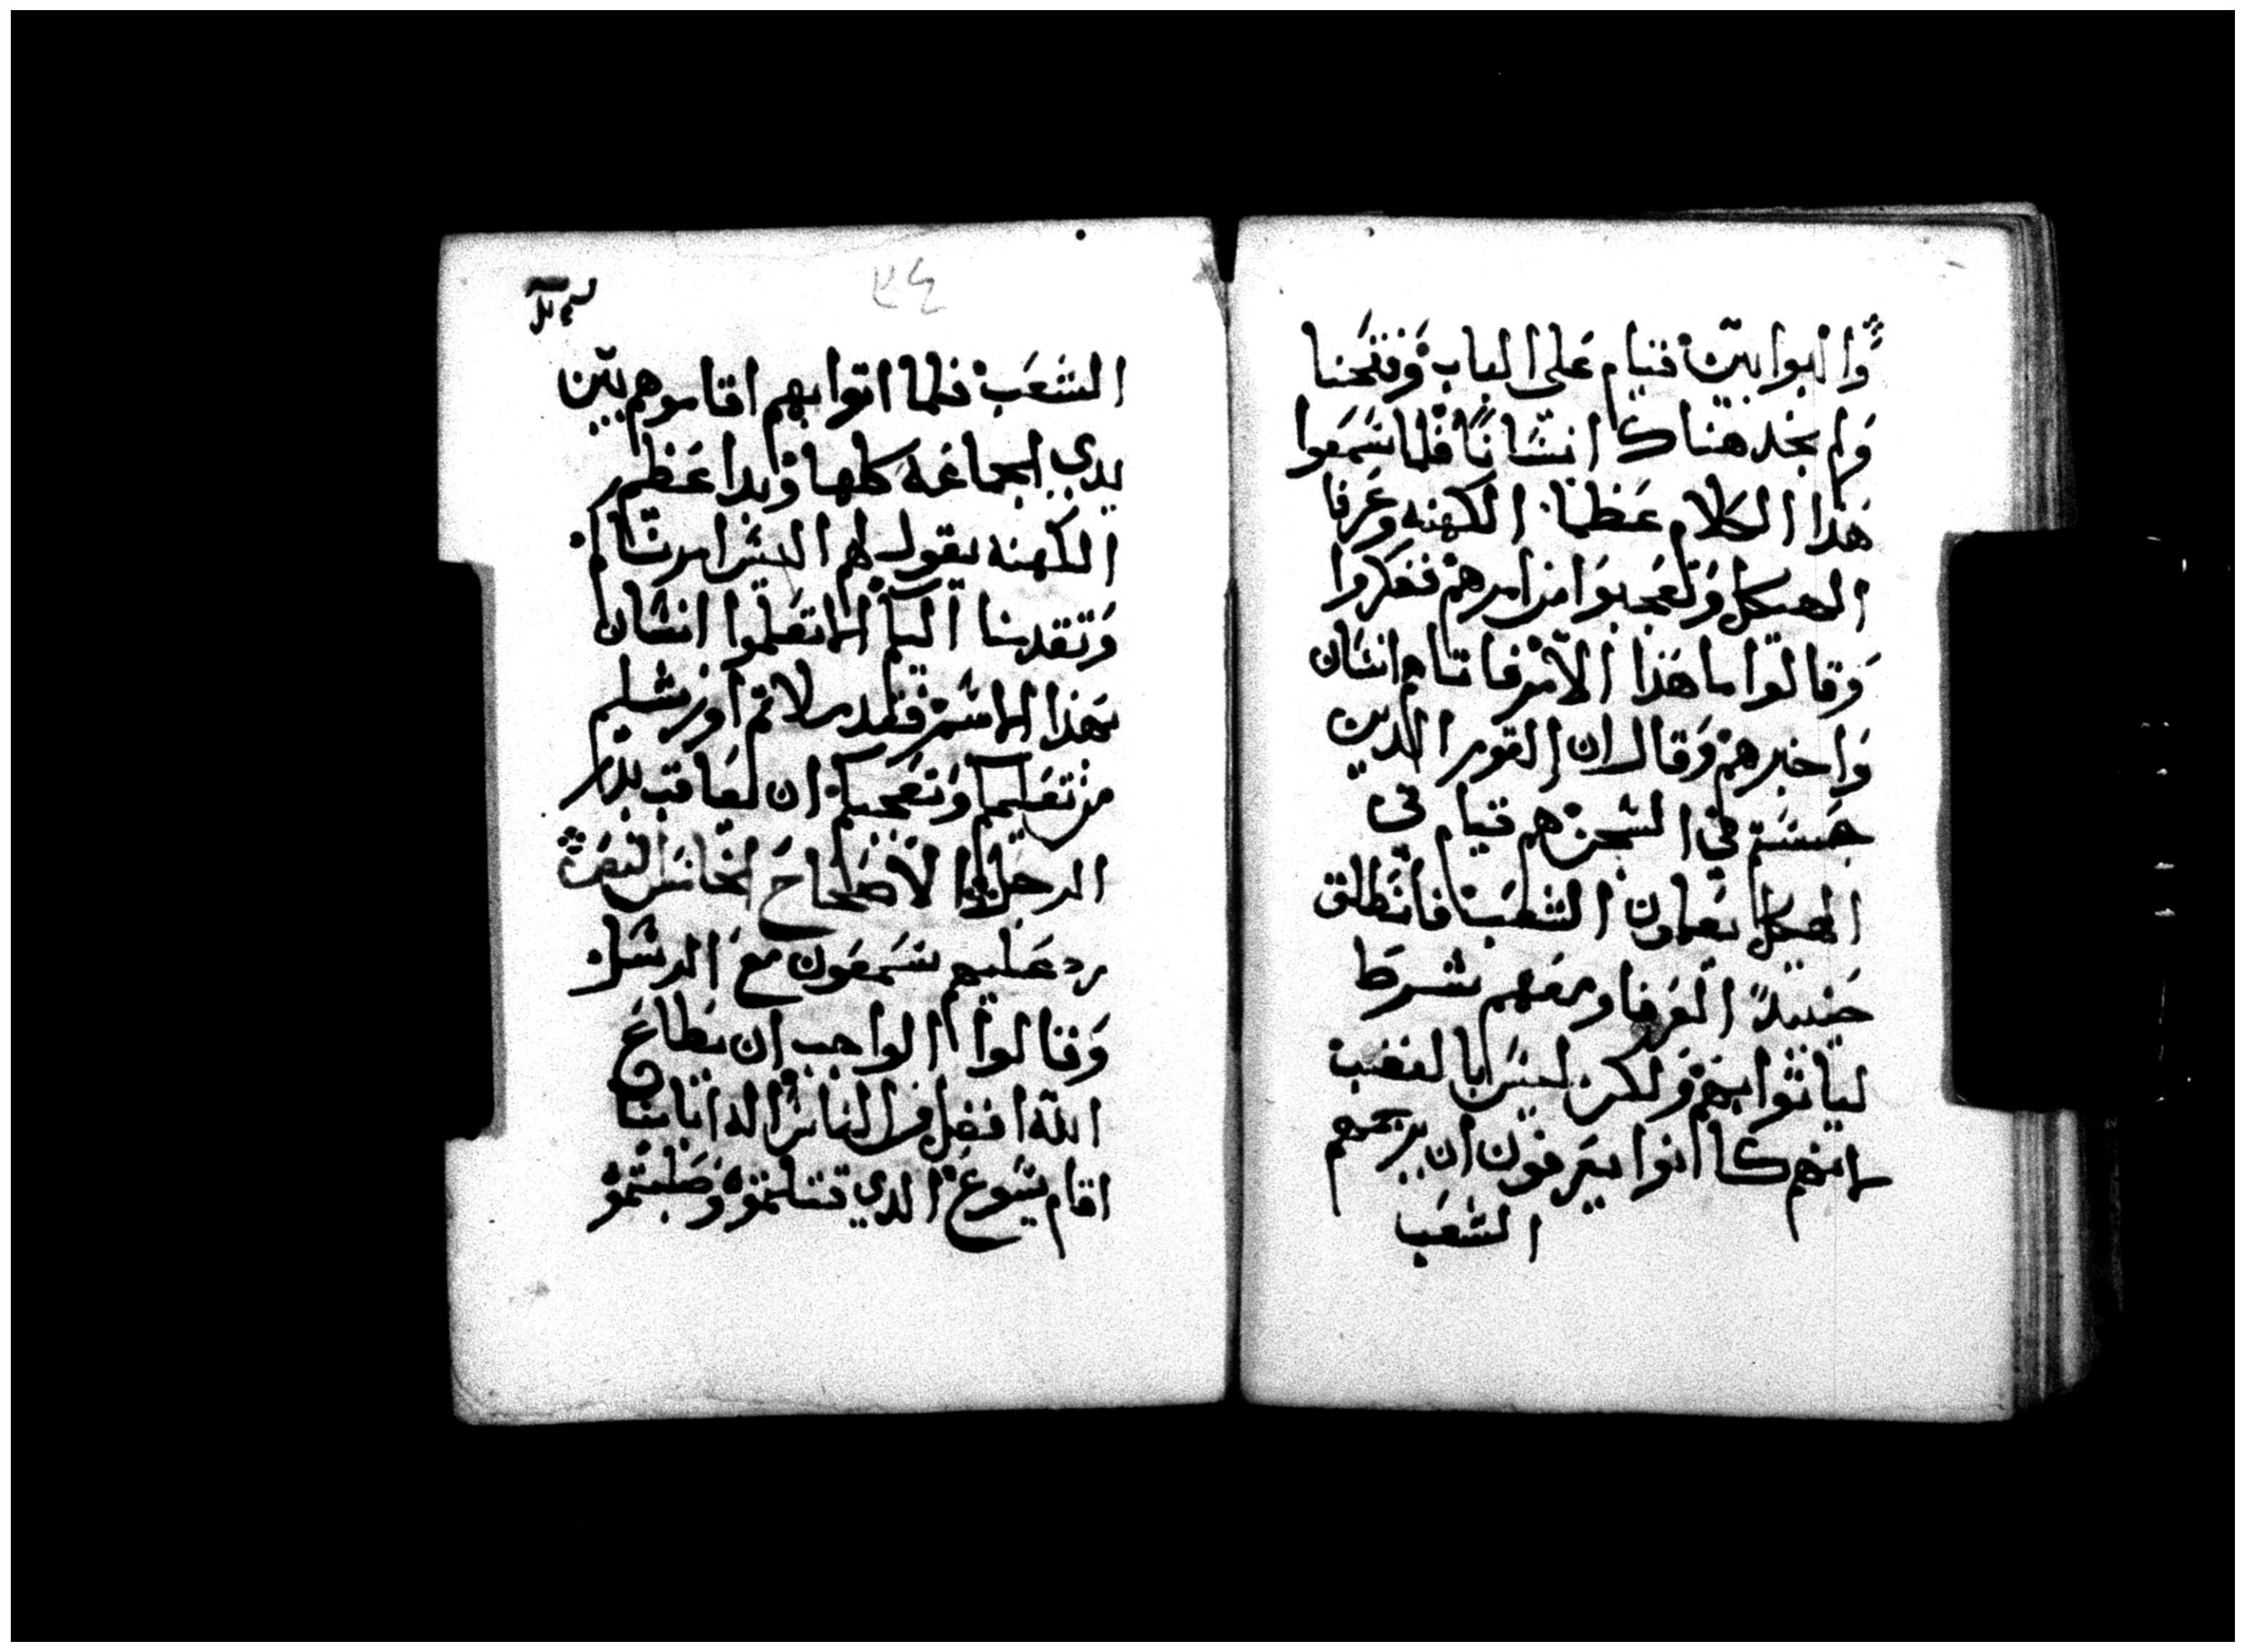 وَالبوابين قيام عَلى الباب وَفتحنا
وَلم نجد هناك انسَانًا فلما سَمَعوا
هَذا الكلام عَظما الكهنه وَعَرفا
الهيكل وَتعَجبوَا من امرهم ففكروا
وَقالوا ما هَذا الأمر فاتاهم انسَان
وَاخبرهم وَقال ان القوم الدين
حبستم في السجن هم قيام في
الهيكل يعَلمون الشعَب فانطلق
حَينيدً العَرفا ومعَهم شرط
لياتوا بهم وَلكن ليسَ بالغضب
لانهم كانوا يعَرفون ان يرجمهم
الشعَب
٣٤
الشعَب فلما اتوا بهم اقاموهم بين
يدي الجماعَة كلها وَبدا عَظم
الكهنه يقول لهم اليسَ امرناكم
وَتقدمنا اليكم الا تعَلموا انسَان
بهذا الاسم فقد ملاتم اورشليم
من تعَليمكم وَتعَجبكم ان لعَاقب بدم
الرجل
رد عَليهم سَمعَون معَ الرسَل
وَقالوا الواجب ان يطاعَ
الله افضل من الناس اله ابآينا
اقام يسَوعَ الدي قتلتموه وَصَلبتموه